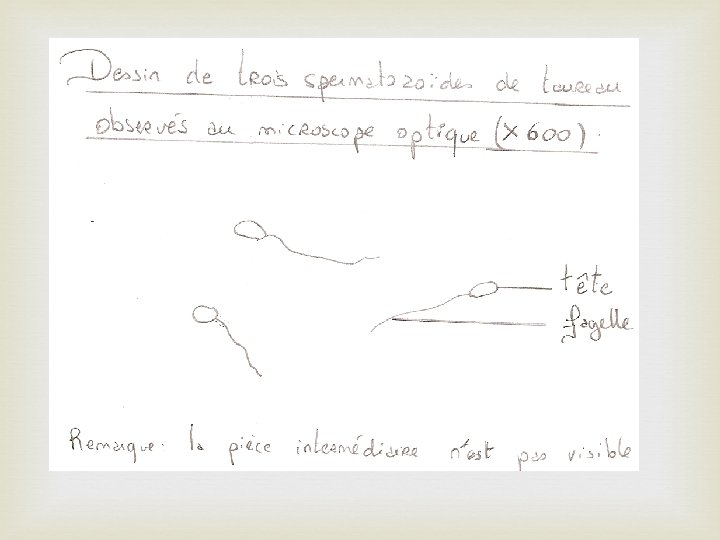 Dessin de trois spermatozoïdes de taureau
observés au microscope optique (X 600).
tête
flagelle
Remarque: la pièce intermédiaire n'est pas visible